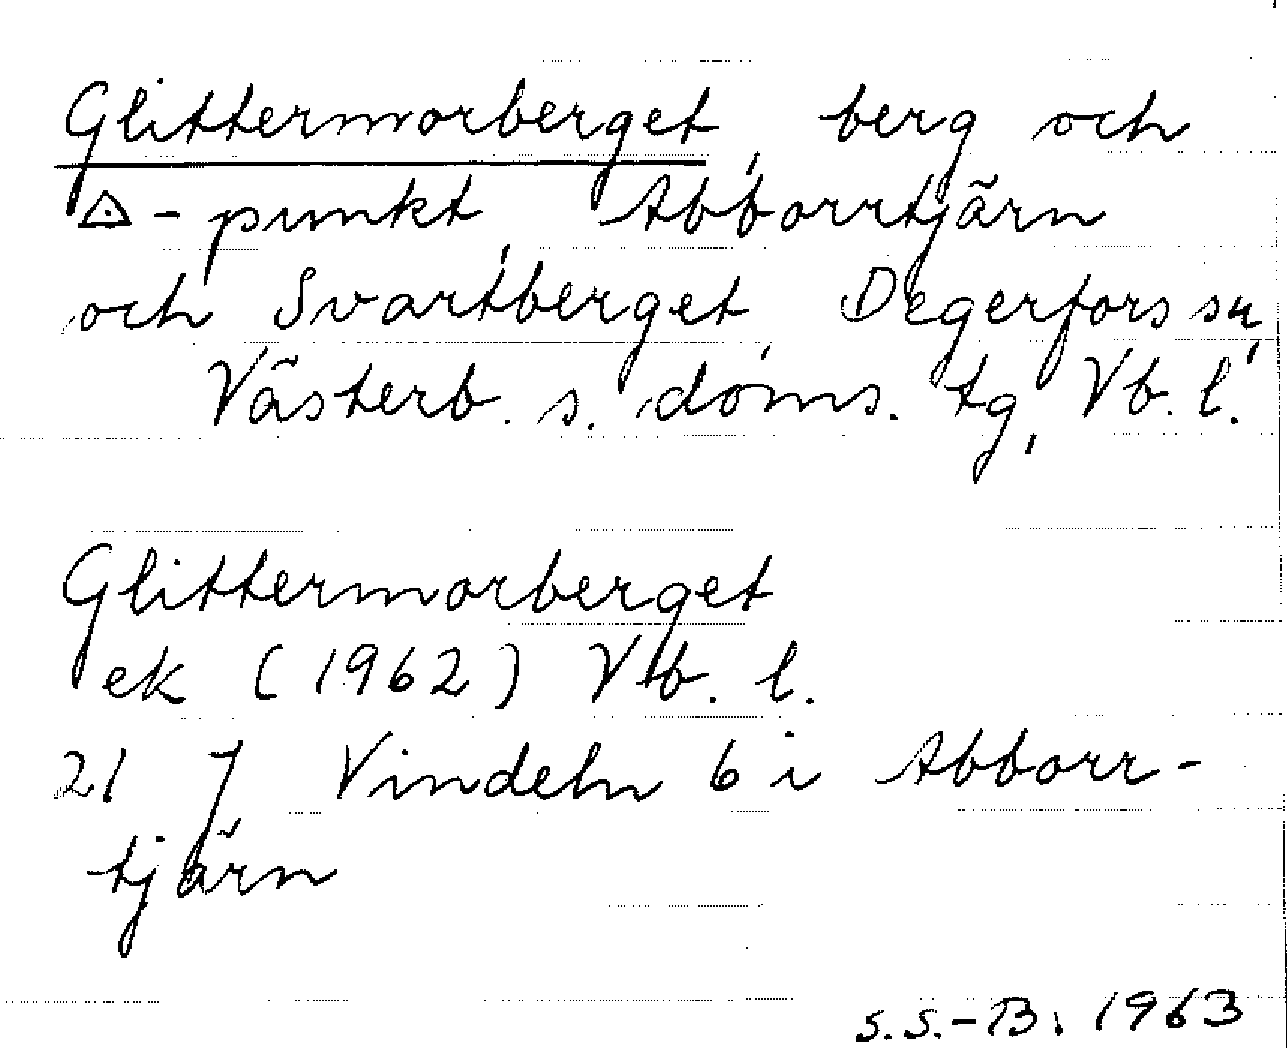 Glittermorberget, berg och
△-punkt, Abborrtjärn
och Svartberget, Degerfors sn,
Västerb. s. doms. tg, Vb. l.
Glittermorberget
ek (1962) Vb. l.
21 J Vindeln 6 i Abborr-
tjärn
S.S.-B. 1963